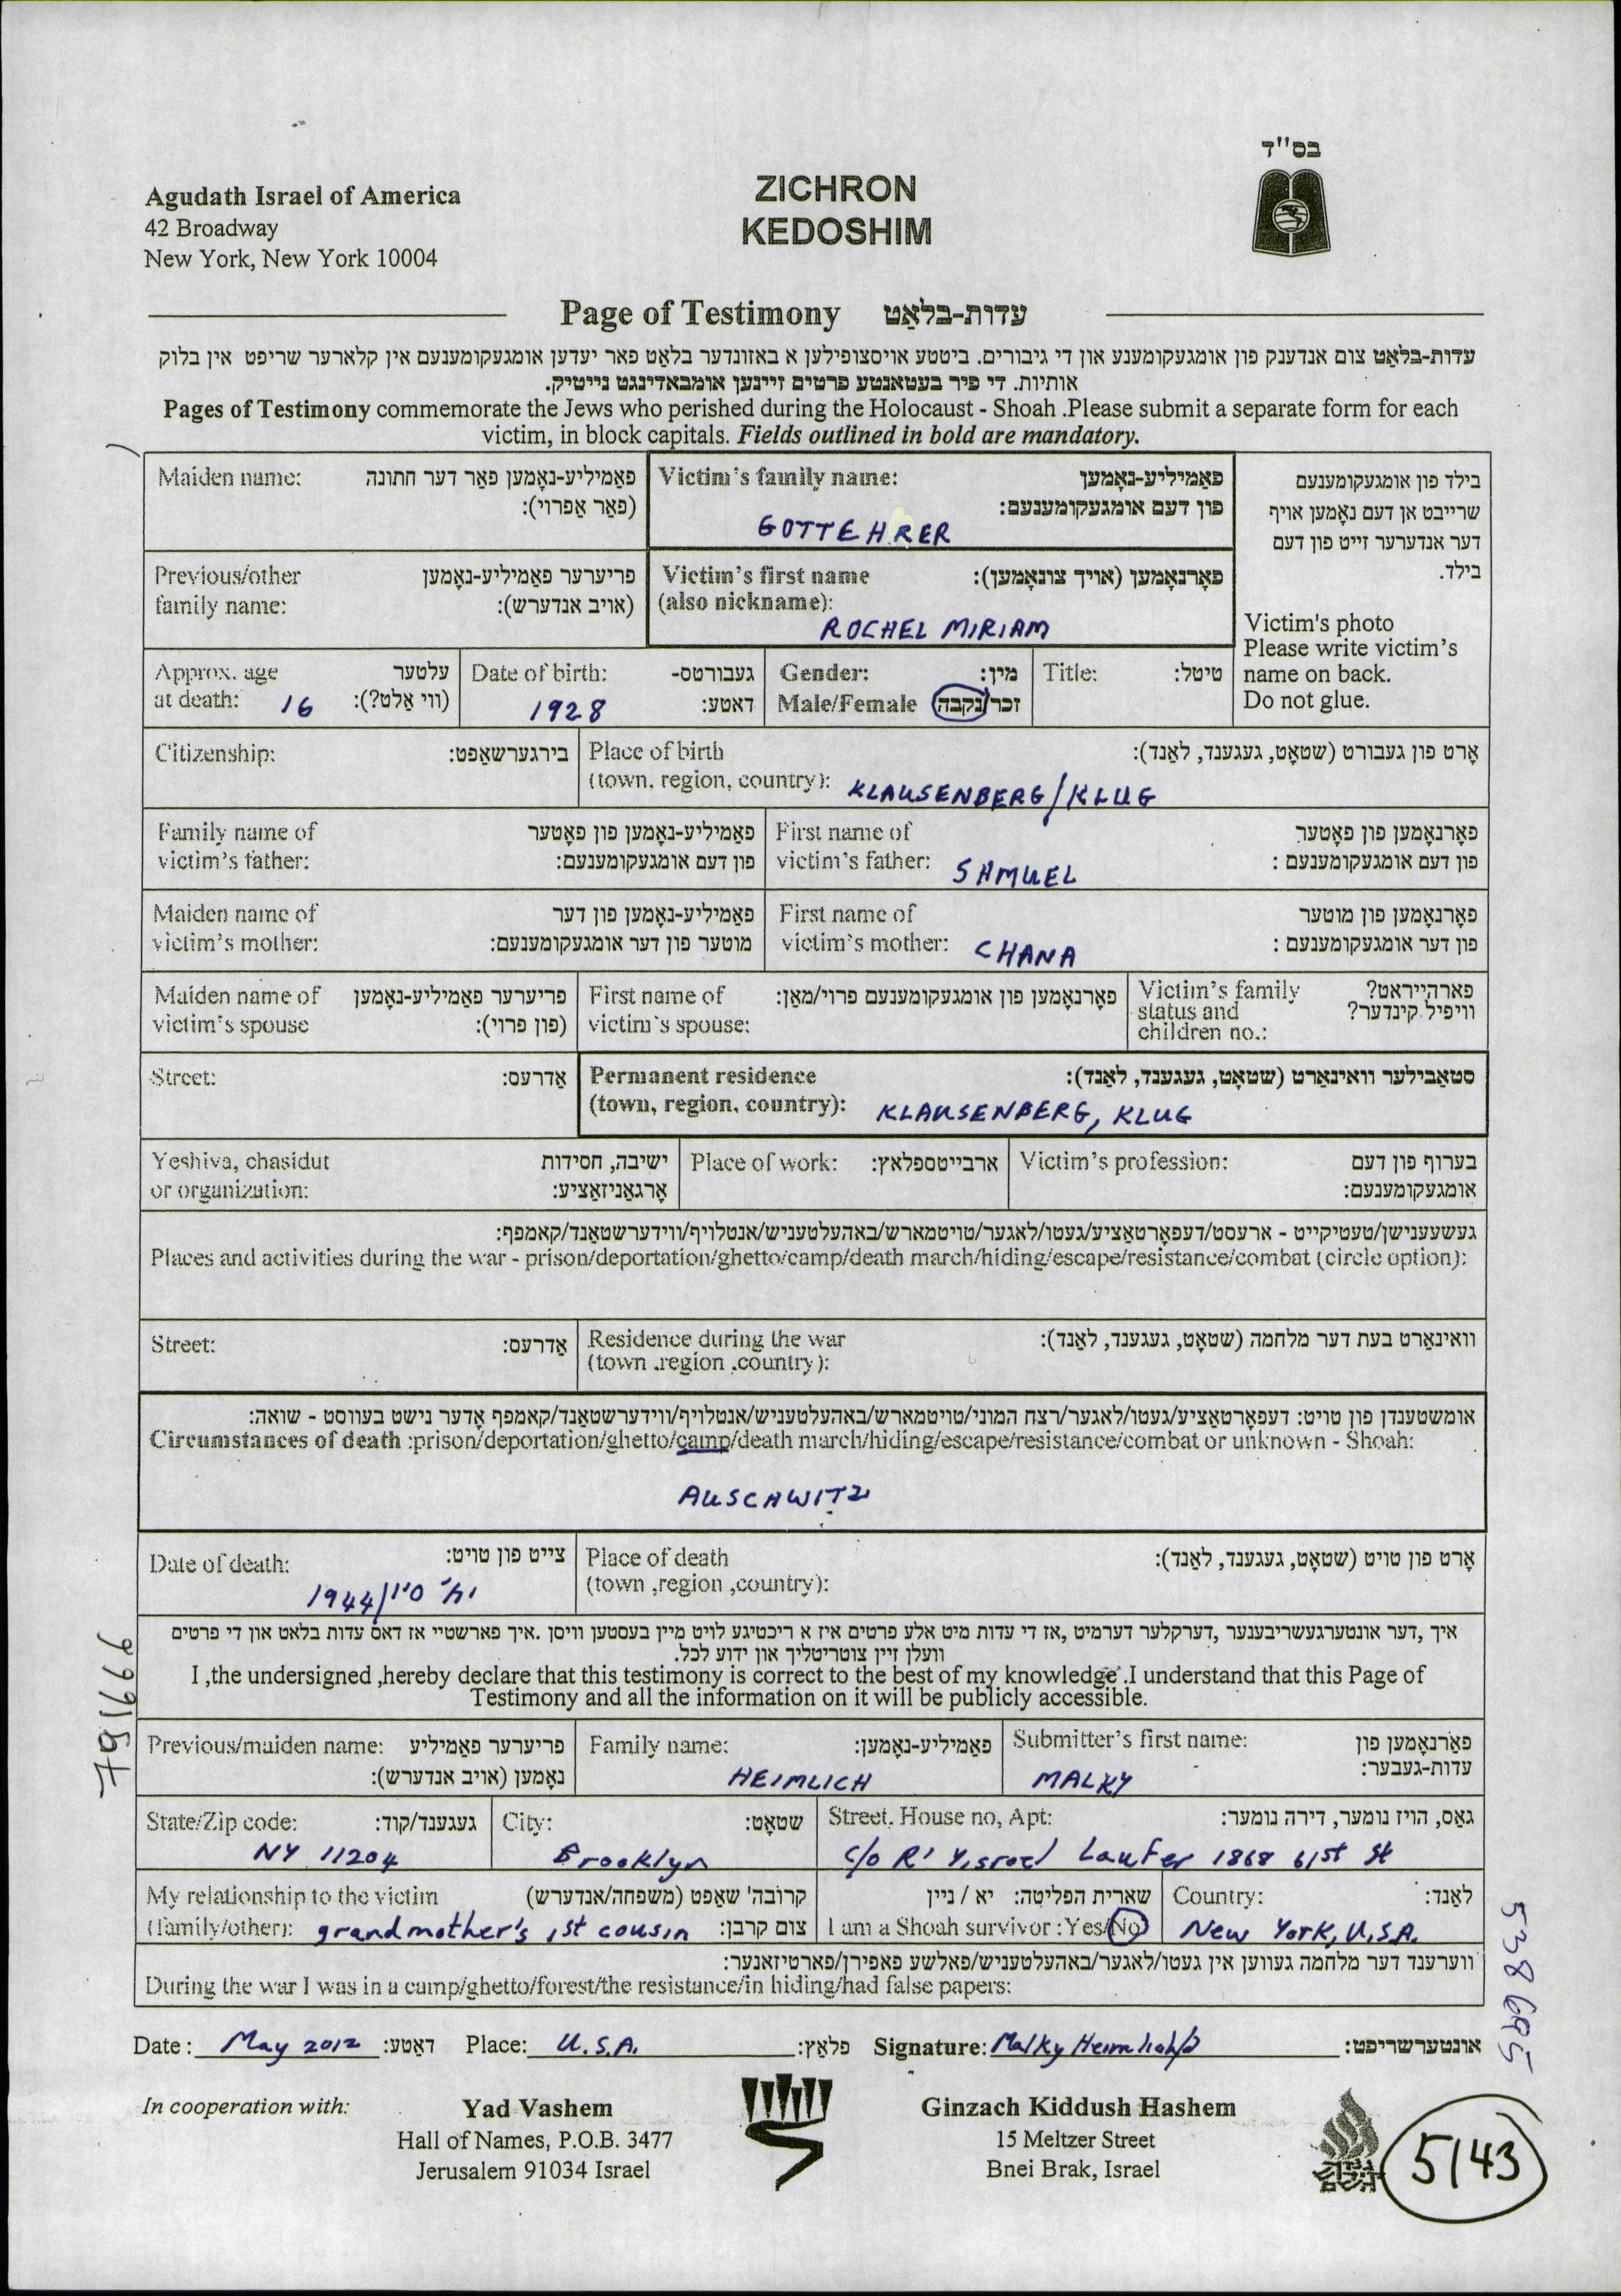 בס"ד
Agudath Israel of America
42 Broadway
New York, New York 10004
ZICHRON
KEDOSHIM
Page of Testimony עדות-בלאַט
עדות-בלאַט צום אנדענק פון אומגעקומענע און די גיבורים. ביטטע אויסצופילען א באזונדער בלאַט פאר יעדען אומגעקומענעם אין קלארער שריפט אין בלוק
אותיות. די פיר בעטאנטע פרטים זיינען אומבאדינגט נייטיק.
Pages of Testimony commemorate the Jews who perished during the Holocaust - Shoah .Please submit a separate form for each
victim, in block capitals. Fields outlined in bold are mandatory.
Maiden name: פאַמיליע-נאָמען פאַר דער חתונה
(פאַר אַפרוי):
Victim's family name: פאַמיליע-נאָמען
פון דעם אומגעקומענעם:
GOTTEHRER
בילד פון אומגעקומענעם
שרייבט אן דעם נאָמען אויף
דער אנדערער זייט פון דעם
בילד.
Victim's photo
Please write victim's
name on back.
Do not glue.
Previous/other פריערער פאַמיליע-נאָמען
family name: (אויב אנדערש):
Victim's first name פאָרנאָמען (אויך צונאָמען):
(also nickname):
ROCHEL MIRIAM
Approx. age עלטער
at death: 16 (ווי אַלט?):
Date of birth: געבורטס-
1928 דאטע:
Gender: מין:
Male/Female זכר/נקבה
Title: טיטל:
Citizenship: בירגערשאַפט:
Place of birth אָרט פון געבורט (שטאָט, געגענד, לאַנד):
(town, region, country): KLAUSENBERG/KLUG
Family name of פאַמיליע-נאָמען פון פאָטער
victim's father: פון דעם אומגעקומענעם:
First name of פאָרנאָמען פון פאָטער
victim's father: SHMUEL פון דעם אומגעקומענעם :
Maiden name of פאַמיליע-נאָמען פון דער
victim's mother: מוטער פון דער אומגעקומענעם:
First name of פאָרנאָמען פון מוטער
victim's mother: CHANA פון דער אומגעקומענעם :
Maiden name of פריערער פאַמיליע-נאָמען
victim's spouse (פון פרוי):
First name of פאָרנאָמען פון אומגעקומענעם פרוי/מאַן:
victim's spouse:
Victim's family פארהייראט?
status and וויפיל קינדער?
children no.:
Street: אַדרעס:
Permanent residence סטאַבילער וואינאַרט (שטאָט, געגענד, לאַנד):
(town, region, country): KLAUSENBERG, KLUG
Yeshiva, chasidut ישיבה, חסידות
or organization: אָרגאַניזאַציע:
Place of work: ארבייטספלאץ:
Victim's profession: בערוף פון דעם
אומגעקומענעם:
געשעענישן/טעטיקייט - ארעסט/דעפאָרטאַציע/געטו/לאגער/טויטמארש/באהעלטעניש/אנטלויף/ווידערשטאַנד/קאמפף:
Places and activities during the war - prison/deportation/ghetto/camp/death march/hiding/escape/resistance/combat (circle option):
Street: אַדרעס:
Residence during the war וואינאַרט בעת דער מלחמה (שטאָט, געגענד, לאַנד):
(town ,region ,country):
אומשטענדן פון טויט: דעפאָרטאַציע/געטו/לאגער/רצח המוני/טויטמארש/באהעלטעניש/אנטלויף/ווידערשטאַנד/קאמפף אָדער נישט בעוווסט - שואה:
Circumstances of death :prison/deportation/ghetto/camp/death march/hiding/escape/resistance/combat or unknown - Shoah:
AUSCHWITZ
Date of death: צייט פון טויט:
1944/
Place of death אָרט פון טויט (שטאָט, געגענד, לאַנד):
(town ,region ,country):
איך ,דער אונטערגעשריבענער ,דערקלער דערמיט ,אז די עדות מיט אלע פרטים איז א ריכטיגע לויט מיין בעסטען וויסן .איך פארשטיי אז דאס עדות בלאט און די פרטים
וועלן זיין צוטריטליך און ידוע לכל.
I ,the undersigned ,hereby declare that this testimony is correct to the best of my knowledge .I understand that this Page of
Testimony and all the information on it will be publicly accessible.
Previous/maiden name: פריערער פאַמיליע
נאָמען (אויב אנדערש):
Family name: פאַמיליע-נאָמען:
HEIMLICH
Submitter's first name: פאָרנאָמען פון
עדות-געבער:
MALKY
State/Zip code: געגענד/קוד:
NY 11204
City: שטאָט:
Brooklyn
Street, House no, Apt: גאַס, הויז נומער, דירה נומער:
c/o R' Yisroel Laufer 1868 61st St
My relationship to the victim קרובה' שאַפט (משפחה/אנדערש)
(family/other): grandmother's 1st cousin צום קרבן:
שארית הפליטה: יא / ניין
I am a Shoah survivor : Yes/No
Country: לאַנד:
New York, U.S.A.
ווערענד דער מלחמה געווען אין געטו/לאגער/באהעלטעניש/פאלשע פאפירן/פארטיזאנער:
During the war I was in a camp/ghetto/forest/the resistance/in hiding/had false papers:
Date : May 2012 דאַטע: Place: U.S.A. פלאַץ: Signature: Malky Heimlich אונטערשריפט:
In cooperation with:
Yad Vashem
Hall of Names, P.O.B. 3477
Jerusalem 91034 Israel
Ginzach Kiddush Hashem
15 Meltzer Street
Bnei Brak, Israel
5143